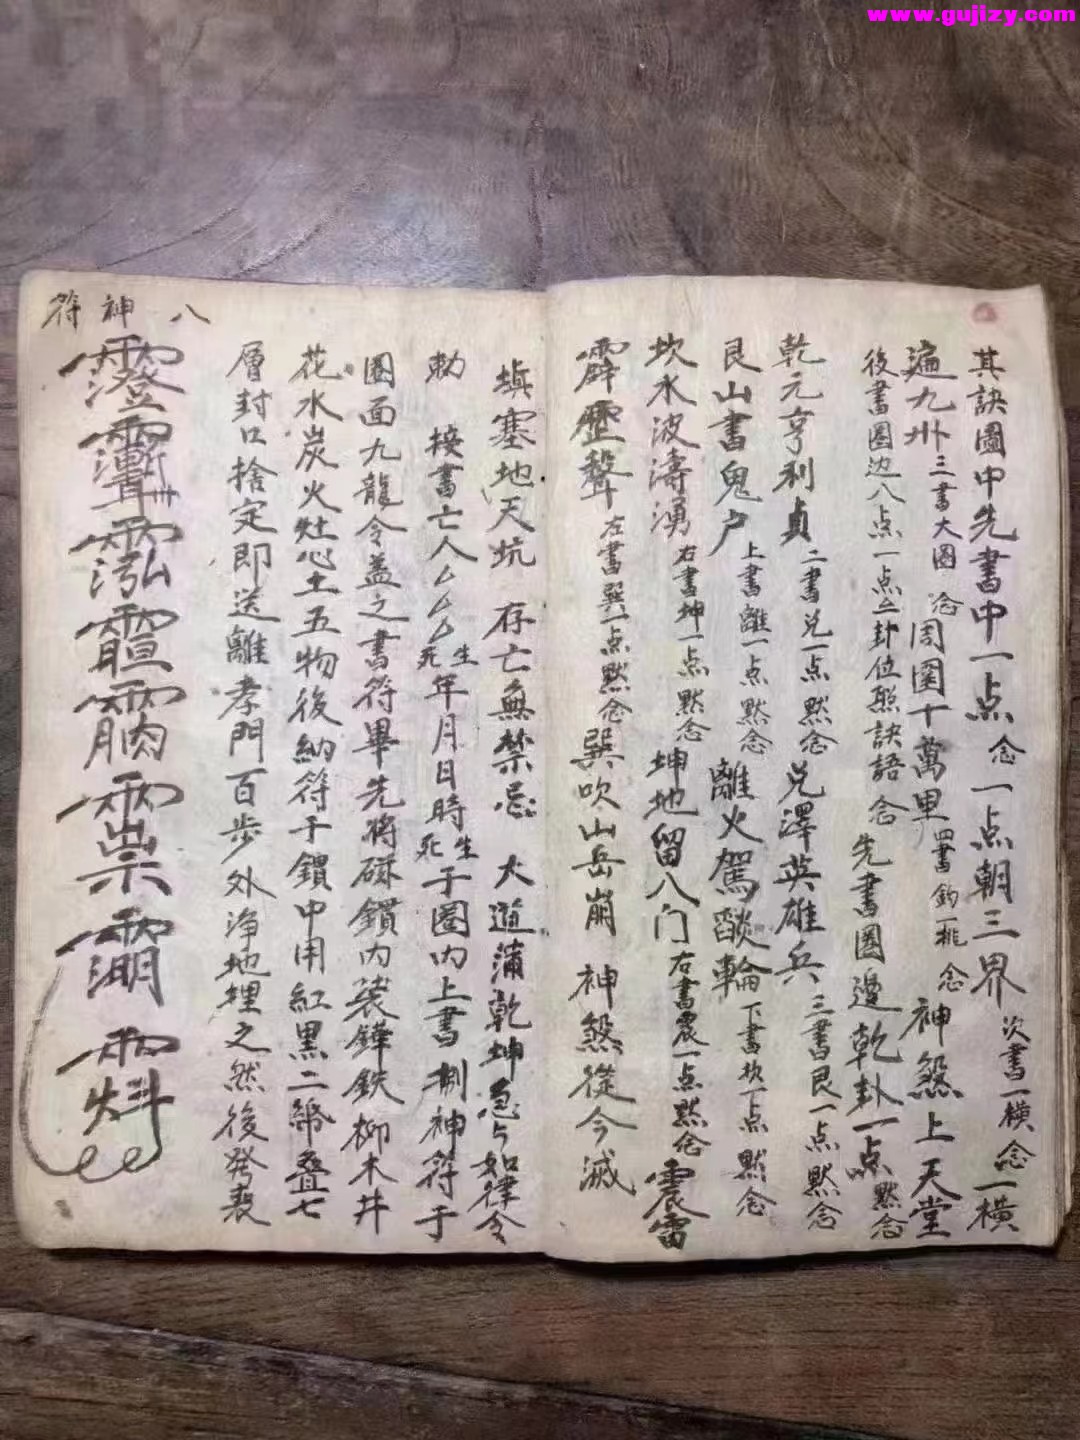 www.gujizy.com
其訣圖中先書中一点念一点朝三界次書一橫念一橫
遍九卅三書大圈念周圍十萬里四書鈎一挑念神煞上天堂
後書圈边八点一点上卦位照訣語念先書圈邊乾卦一点默念
乾元亨利貞二書兑一点默念兑澤英雄兵三書艮一点默念
艮山書鬼户上書離一点默念離火駕燄輪下書坎一点默念
坎水波濤湧右書坤一点默念坤地留八门右書震一点默念震雷
霹靂聲左書巽一点默念巽吹山岳崩神煞從今滅
填塞地天坑存亡無禁忌大道蒲乾坤急急如律令
勅按書亡人厶厶厶生死年月日時生死于圈内上書捌神符于
圈面九龍令盖之書符畢先將碌鑵内裝鏵鉄柳木井
花水炭火灶心土五物後納符于鑵中用紅黑二綿叠七
層封口捨定即送離孝門百步外净地埋之然後發喪
八神符